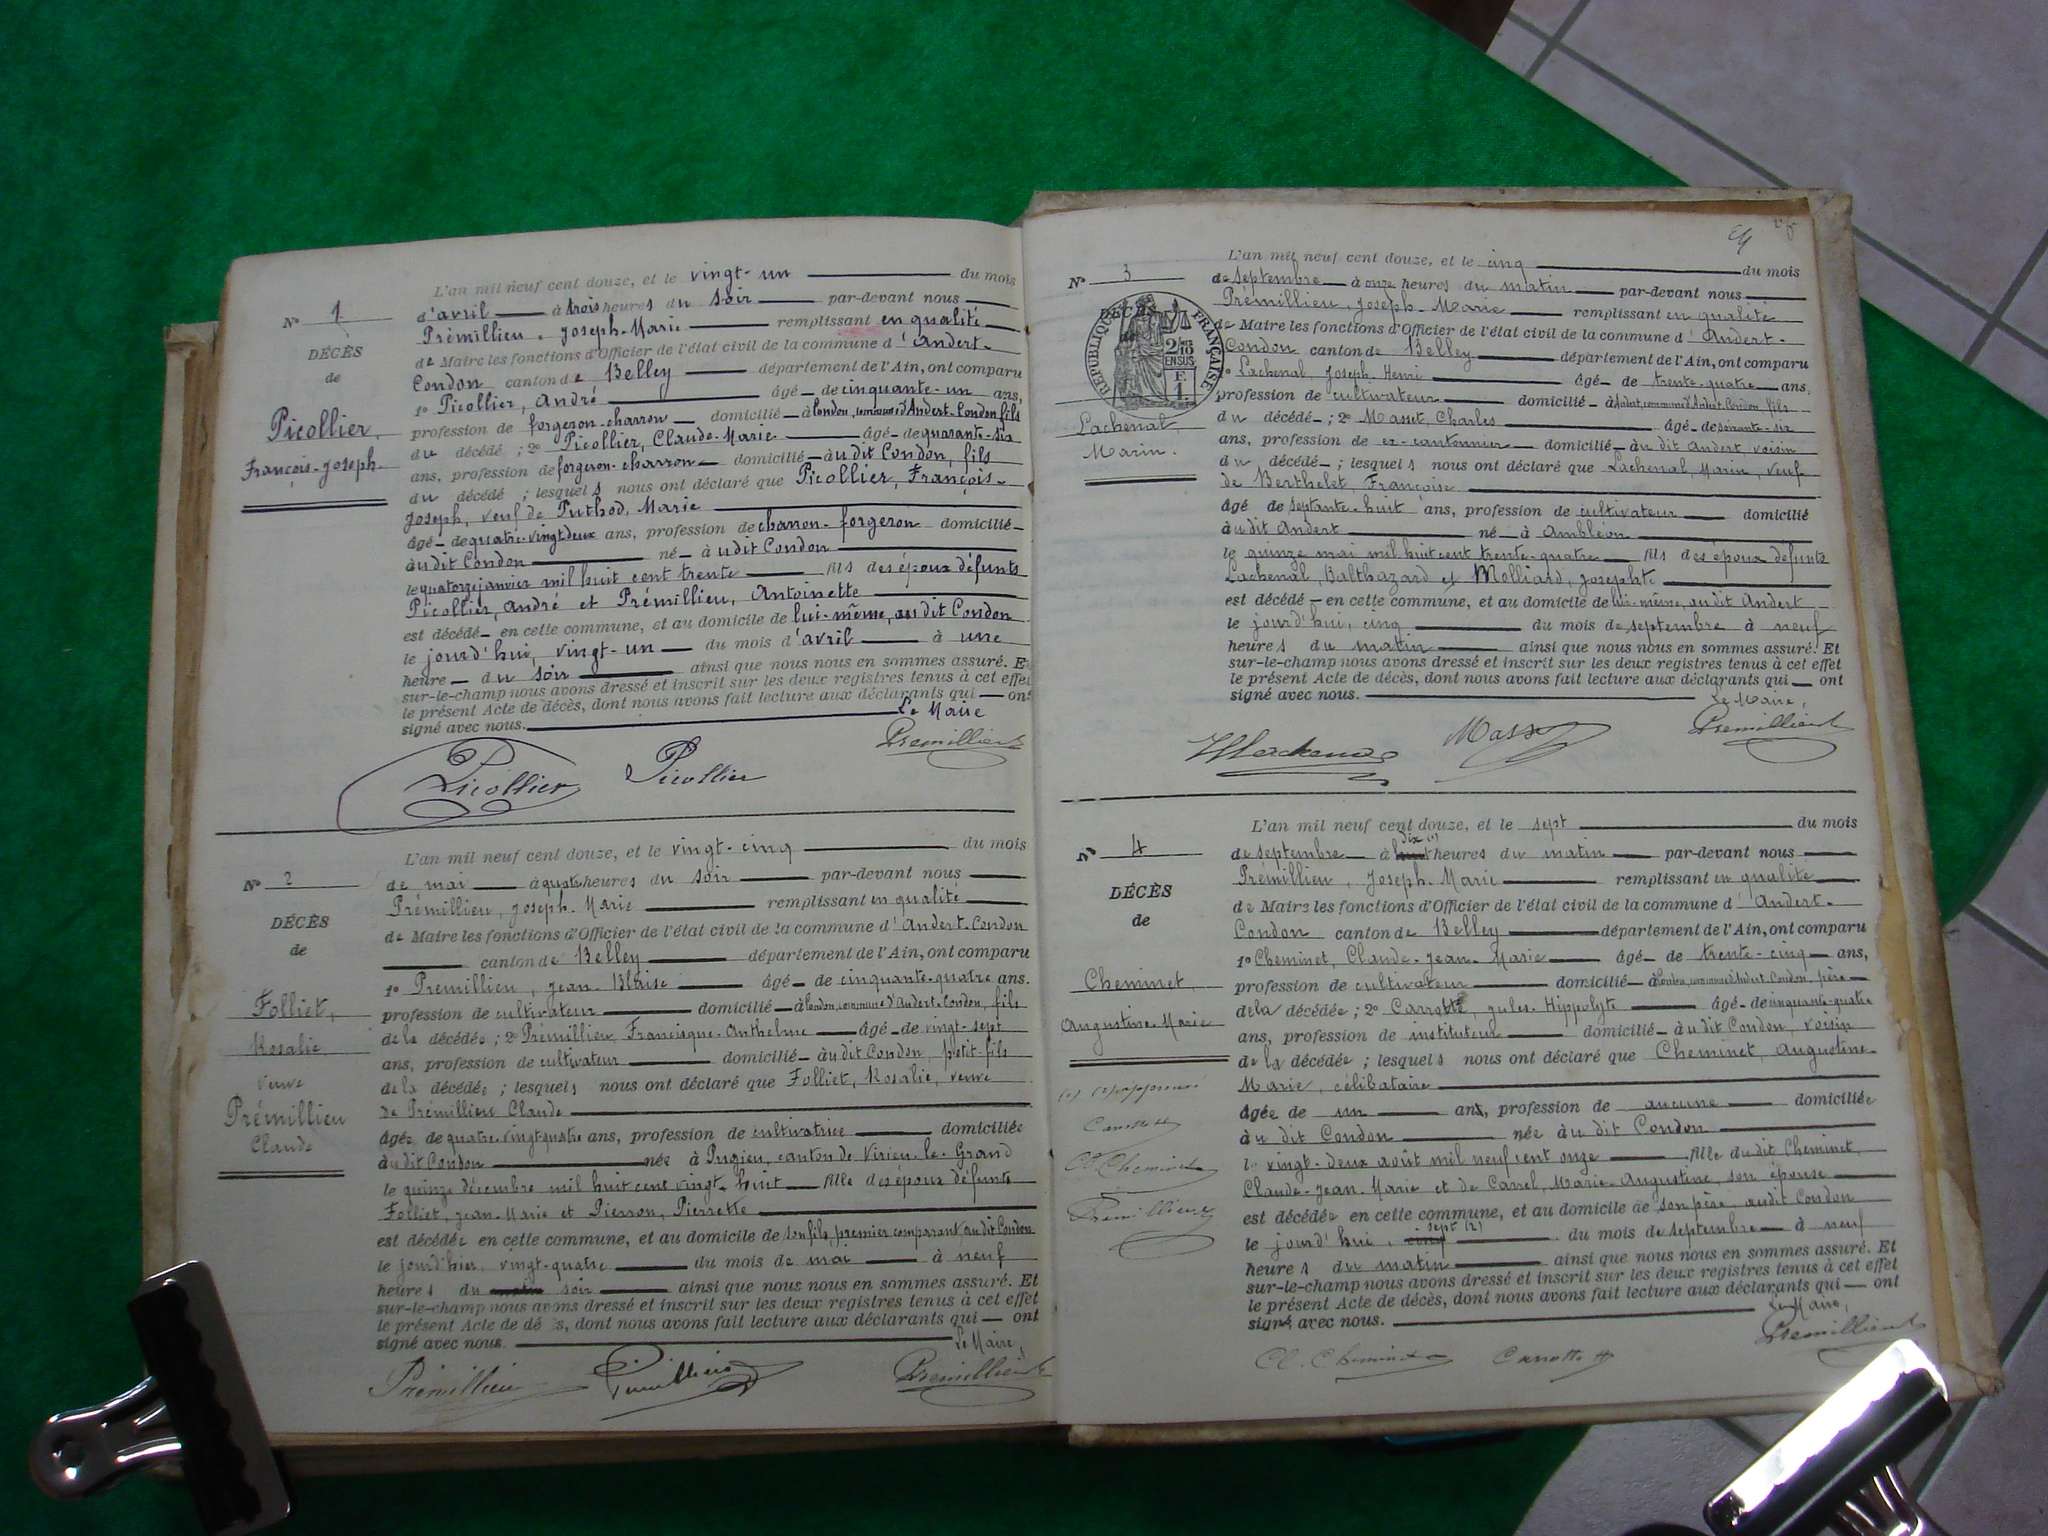 L'an mil neuf cent douze, et le vingt-un du mois
N° 1
d'avril à trois heures du soir par-devant nous
Prémillieu, Joseph-Marie remplissant en qualité
DÉCÈS
de Maire les fonctions d'Officier de l'état civil de la commune d'Andert-
de
Condon canton de Belley département de l'Ain, ont comparu
1° Picollier, André âgé de cinquante-un ans,
Picollier,
profession de forgeron-charron domicilié à Condon, commune d'Andert-Condon fils
François-Joseph
du décédé ; 2° Picollier, Claude-Marie âgé de quarante-six
ans, profession de forgeron-charron domicilié au dit Condon, fils
du décédé ; lesquels nous ont déclaré que Picollier, François-
Joseph, veuf de Puthod, Marie
âgé de quatre-vingt deux ans, profession de charron-forgeron domicilié
au dit Condon né à udit Condon
le quatorze janvier mil huit cent trente fils des époux défunts
Picollier, André et Prémillieu, Antoinette
est décédé en cette commune, et au domicile de lui-même, au dit Condon
le jourd'hui, vingt-un du mois d'avril à une
heure du soir ainsi que nous nous en sommes assuré. Et
sur-le-champ nous avons dressé et inscrit sur les deux registres tenus à cet effet
le présent Acte de décès, dont nous avons fait lecture aux déclarants qui ont
signé avec nous. Le Maire
Picollier Picollier Premillieu
L'an mil neuf cent douze, et le vingt-cinq du mois
N° 2
de mai à quatre heures du soir par-devant nous
Prémillieu, Joseph-Marie remplissant en qualité
DÉCÈS
de Maire les fonctions d'Officier de l'état civil de la commune d'Andert-Condon
de
canton de Belley département de l'Ain, ont comparu
1° Prémillieu, Jean-Blaise âgé de cinquante-quatre ans.
Folliet,
profession de cultivateur domicilié à Condon, commune d'Andert-Condon, fils
Rosalie
de la décédée ; 2° Prémillieu Francisque-Anthelme âgé de vingt-sept
veuve
ans, profession de cultivateur domicilié au dit Condon, petit-fils
Prémillieu
de la décédée ; lesquels nous ont déclaré que Folliet, Rosalie, veuve
Claude
de Prémillieu Claude
âgée de quatre-vingt-quatre ans, profession de cultivatrice domiciliée
au dit Condon née à Pugieu, canton de Virieu-le-Grand
le quinze décembre mil huit cent vingt-huit fille des époux défunts
Folliet, Jean-Marie et Pierron, Pierrette
est décédée en cette commune, et au domicile de son fils, premier comparant, au dit Condon
le jour d'hier, vingt-quatre du mois de mai à neuf
heures du soir ainsi que nous nous en sommes assuré. Et
sur-le-champ nous avons dressé et inscrit sur les deux registres tenus à cet effet
le présent Acte de décès, dont nous avons fait lecture aux déclarants qui ont
signé avec nous. Le Maire,
Prémillieu Prémillieu Premillieu
L'an mil neuf cent douze, et le cinq du mois
N° 3
de septembre à onze heures du matin par-devant nous
Prémillieu, Joseph-Marie remplissant en qualité
DÉCÈS
RÉPUBLIQUE FRANÇAISE
2/10 EN SUS
E 1
de Maire les fonctions d'Officier de l'état civil de la commune d'Andert-
Condon canton de Belley département de l'Ain, ont comparu
1° Lachenal, Joseph-Henri âgé de trente-quatre ans.
profession de cultivateur domicilié à Andert, commune d'Andert-Condon fils
Lachenal,
du décédé ; 2° Masset, Charles âgé de soixante-six
Marin.
ans, profession de ex-cantonnier domicilié au dit Andert, voisin
du décédé ; lesquels nous ont déclaré que Lachenal, Marin, veuf
de Berthelet, Françoise
âgé de septante-huit ans, profession de cultivateur domicilié
au dit Andert né à Ambléon
le quinze mai mil huit cent trente-quatre fils des époux défunts
Lachenal, Balthazard et Molliard, Josephte
est décédé en cette commune, et au domicile de lui-même, au dit Andert
le jourd'hui, cinq du mois de septembre à neuf
heures du matin ainsi que nous nous en sommes assuré. Et
sur-le-champ nous avons dressé et inscrit sur les deux registres tenus à cet effet
le présent Acte de décès, dont nous avons fait lecture aux déclarants qui ont
signé avec nous. Le Maire,
Premillieu
L'an mil neuf cent douze, et le sept du mois
N° 4
de septembre à dix (1) heures du matin par-devant nous
Prémillieu, Joseph-Marie remplissant en qualité
DÉCÈS
de Maire les fonctions d'Officier de l'état civil de la commune d'Andert-
de
Condon canton de Belley département de l'Ain, ont comparu
1° Cheminet, Claude-Jean-Marie âgé de trente-cinq ans,
Cheminet,
profession de cultivateur domicilié à Condon, commune d'Andert-Condon, père
de la décédée ; 2° Carrotte, Jules-Hippolyte âgé de cinquante-quatre
Augustine-Marie
ans, profession de instituteur domicilié au dit Condon, voisin
de la décédée ; lesquels nous ont déclaré que Cheminet, Augustine-
Marie, célibataire
(1) (2) approuvé
âgée de un ans, profession de aucune domiciliée
Carrotte
au dit Condon née au dit Condon
Cl. Cheminet
le vingt-deux août mil neuf cent onze fille du dit Cheminet,
Claude-Jean-Marie et de Carrel, Marie-Augustine, son épouse
Premillieu
est décédée en cette commune, et au domicile de son père, au dit Condon
le jourd'hui, cinq sept (2) du mois de septembre à neuf
heures du matin ainsi que nous nous en sommes assuré. Et
sur-le-champ nous avons dressé et inscrit sur les deux registres tenus à cet effet
le présent Acte de décès, dont nous avons fait lecture aux déclarants qui ont
signé avec nous. Le Maire,
Cl. Cheminet Carrotte Premillieu